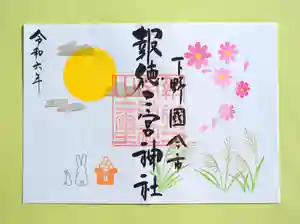 下野國今市
報徳二宮神社
令和六年